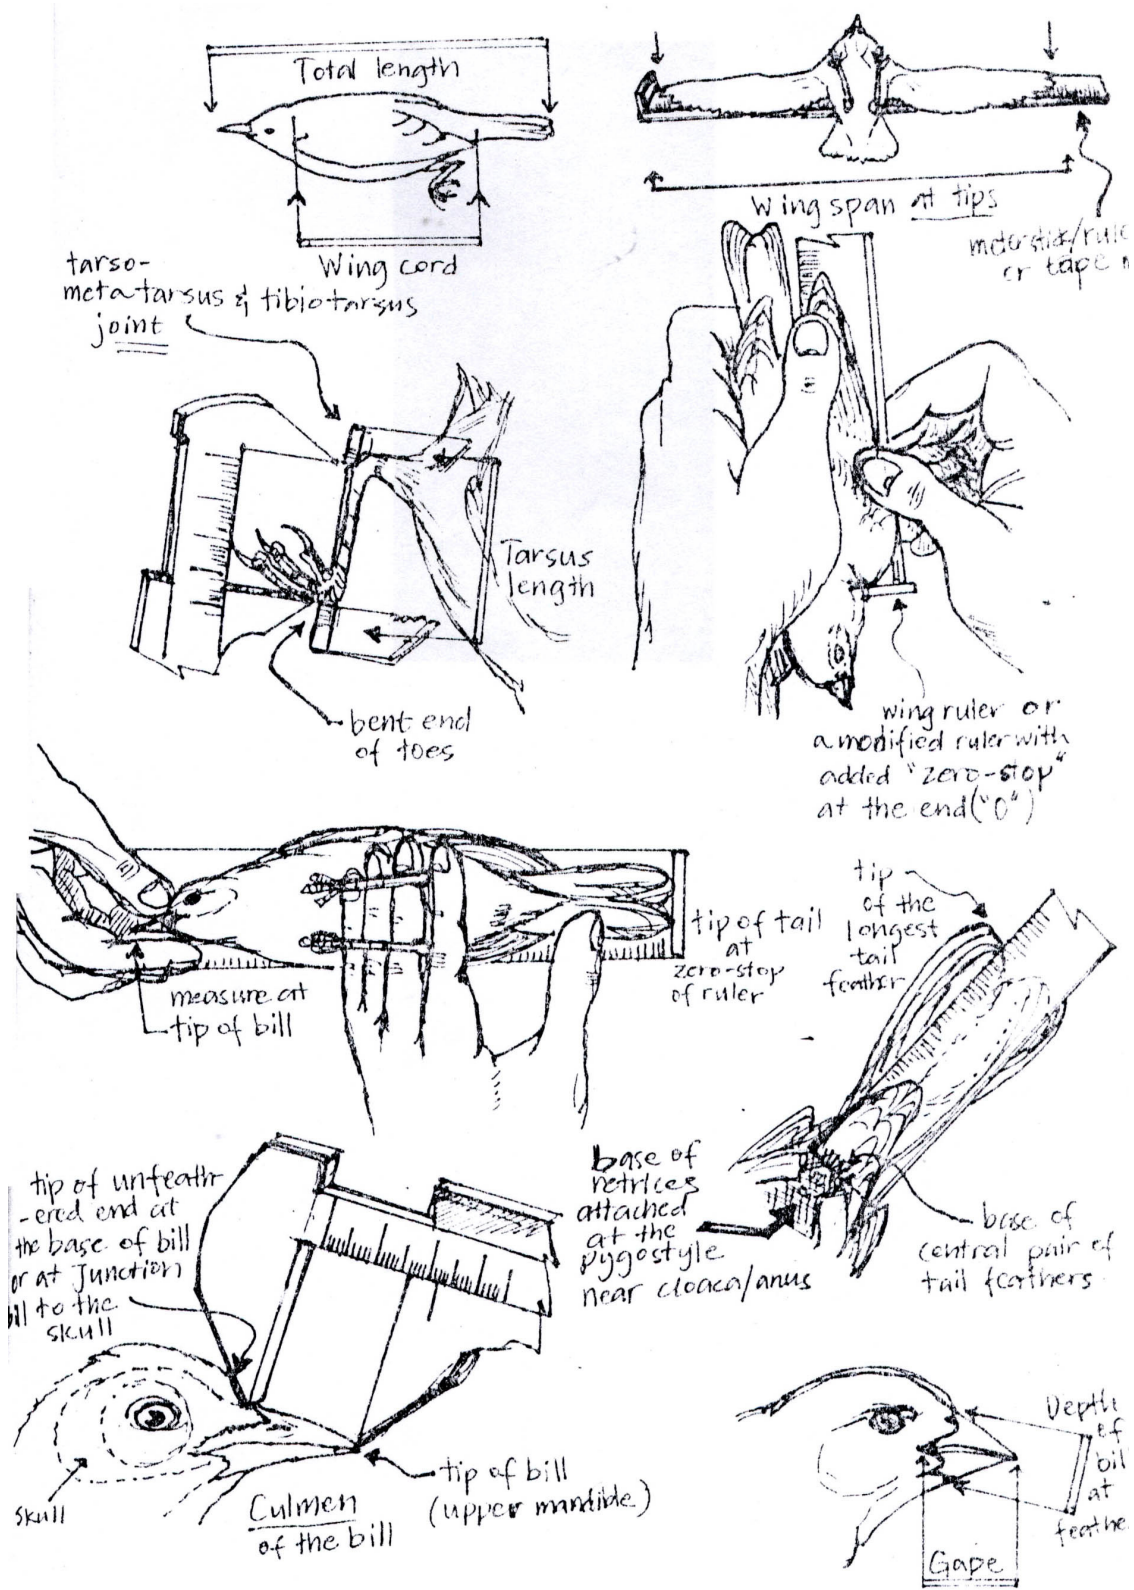 Total length
Wing cord
Wing span at tips
meterstick/rule
or tape m
tarso-
metatarsus & tibiotarsus
joint
Tarsus
length
bent end
of toes
wing ruler or
a modified ruler with
added "zero-stop"
at the end ("0")
measure at
tip of bill
tip of tail
at
zero-stop
of ruler
tip
of the
longest
tail
feather
base of
retrices
attached
at the
pygostyle
near cloaca/anus
base of
central pair of
tail feathers
tip of unfeath
-ered end at
the base of bill
or at Junction
ill to the
skull
skull
Culmen
of the bill
tip of bill
(upper mandible)
Depth
of
bil
at
feathe
Gape